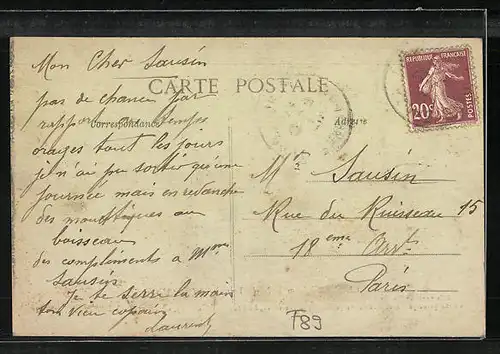 Mon Cher Sausin
CARTE POSTALE
pas de chance par
rapport au temps
Correspondance
Adresse
orages tout les jours
je n'ai pu sortir qu'une
journée mais en revanche
des moustiques au
boisseau
des compliments à Mme
Sausin
Je te serre la main
ton vieux copain
Laurent
REPUBLIQUE FRANÇAISE
20c
POSTES
Mr Sausin
Rue du Ruisseau 15
18eme Arrt
Paris
F89